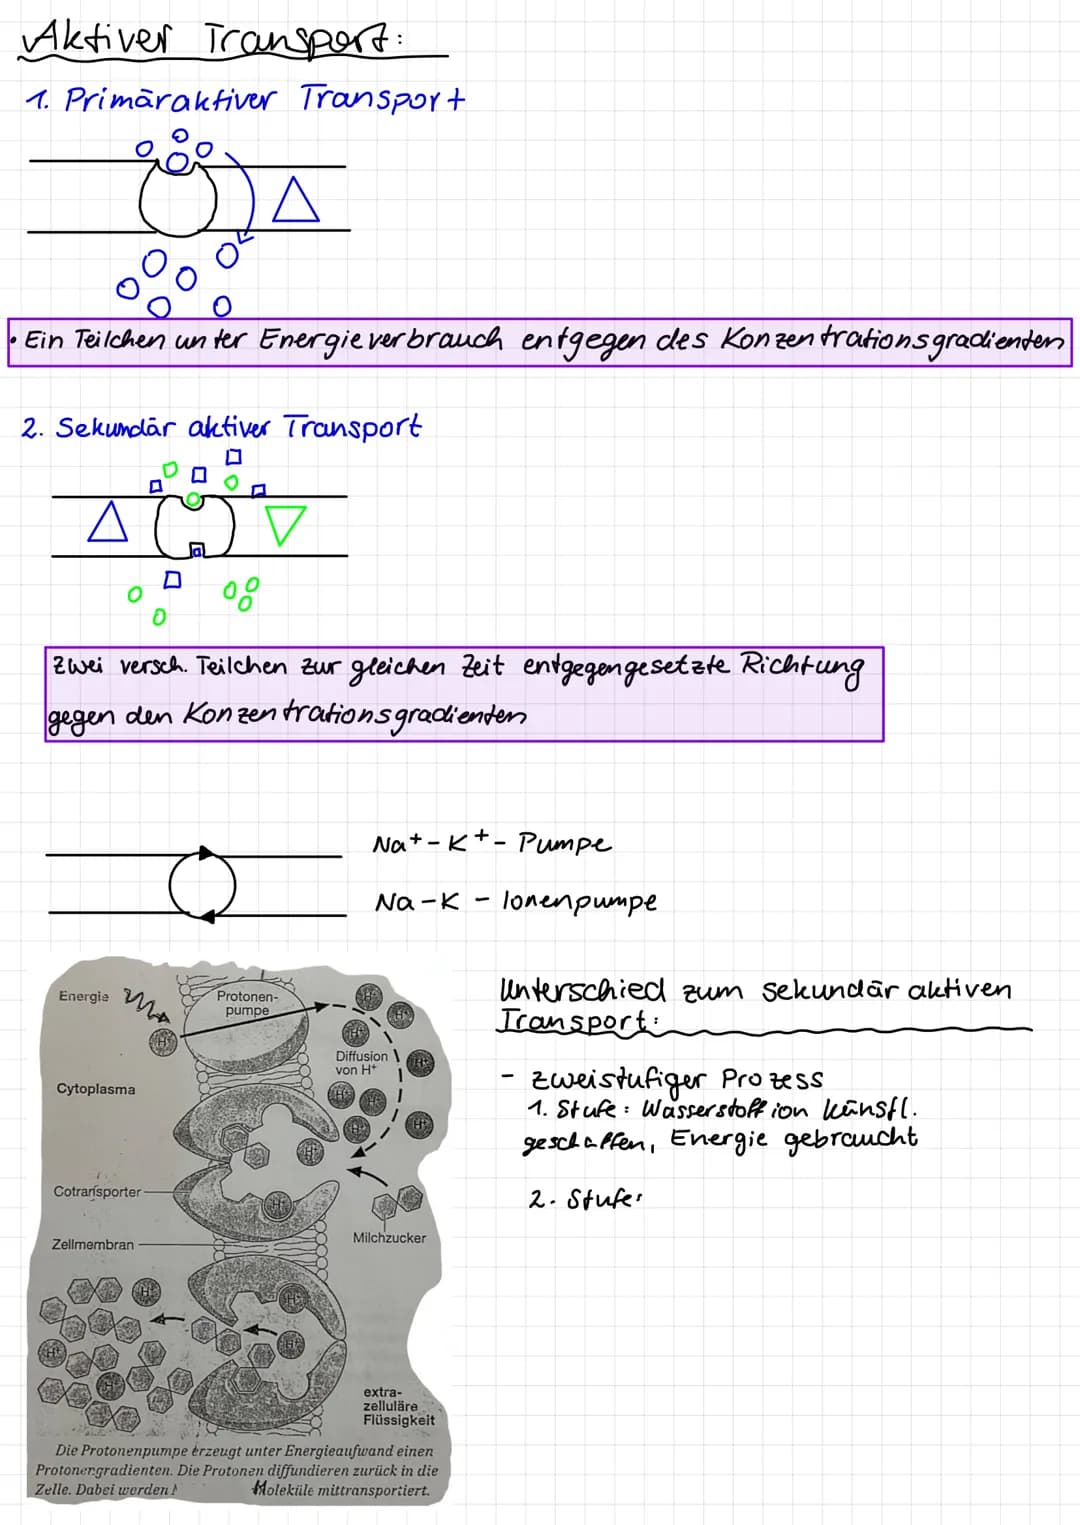 Aktiver Transport:
1. Primäraktiver Transport
• Ein Teilchen unter Energieverbrauch entgegen des Konzentrationsgradienten
2. Sekundär aktiver Transport
Zwei versch. Teilchen zur gleichen Zeit entgegengesetzte Richtung
gegen den Konzentrationsgradienten
Na+-K+- Pumpe
Na-K - Ionenpumpe
Unterschied zum sekundär aktiven
Transport:
- zweistufiger Prozess
1. Stufe: Wasserstoffion künstl.
geschaffen, Energie gebraucht
2. Stufe:
Energie
Protonen-
pumpe
H+
H+
H+
H+
Diffusion
von H+
H+
Cytoplasma
H+
H+
H+
H+
H+
Cotransporter
H+
Milchzucker
Zellmembran
H+
H+
H+
H+
H+
extra-
zelluläre
Flüssigkeit
Die Protonenpumpe erzeugt unter Energieaufwand einen
Protonengradienten. Die Protonen diffundieren zurück in die
Zelle. Dabei werden Moleküle mittransportiert.